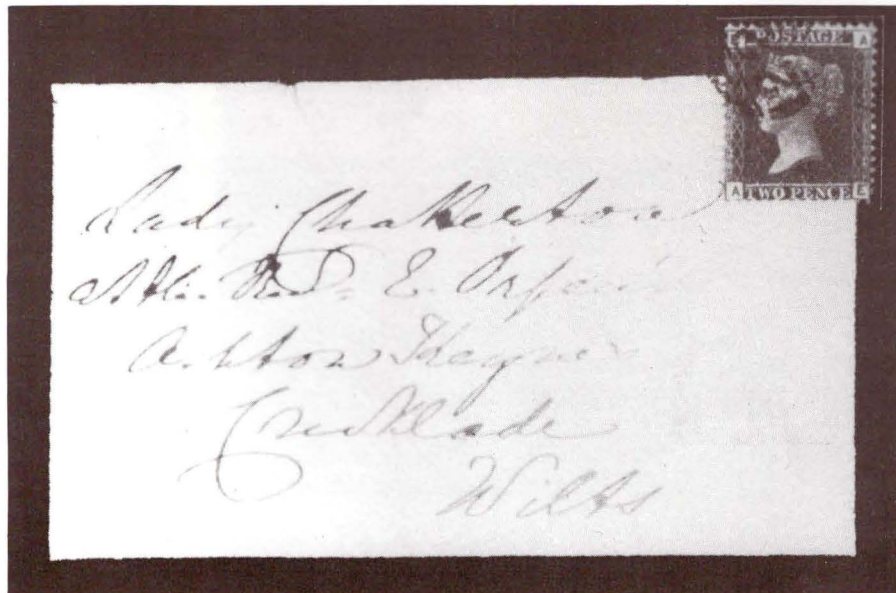 E POSTAGE A
A TWO PENCE E
Lady Chatterton
at the Revd. E.
Ashton Keynes
Cricklade
Wilts